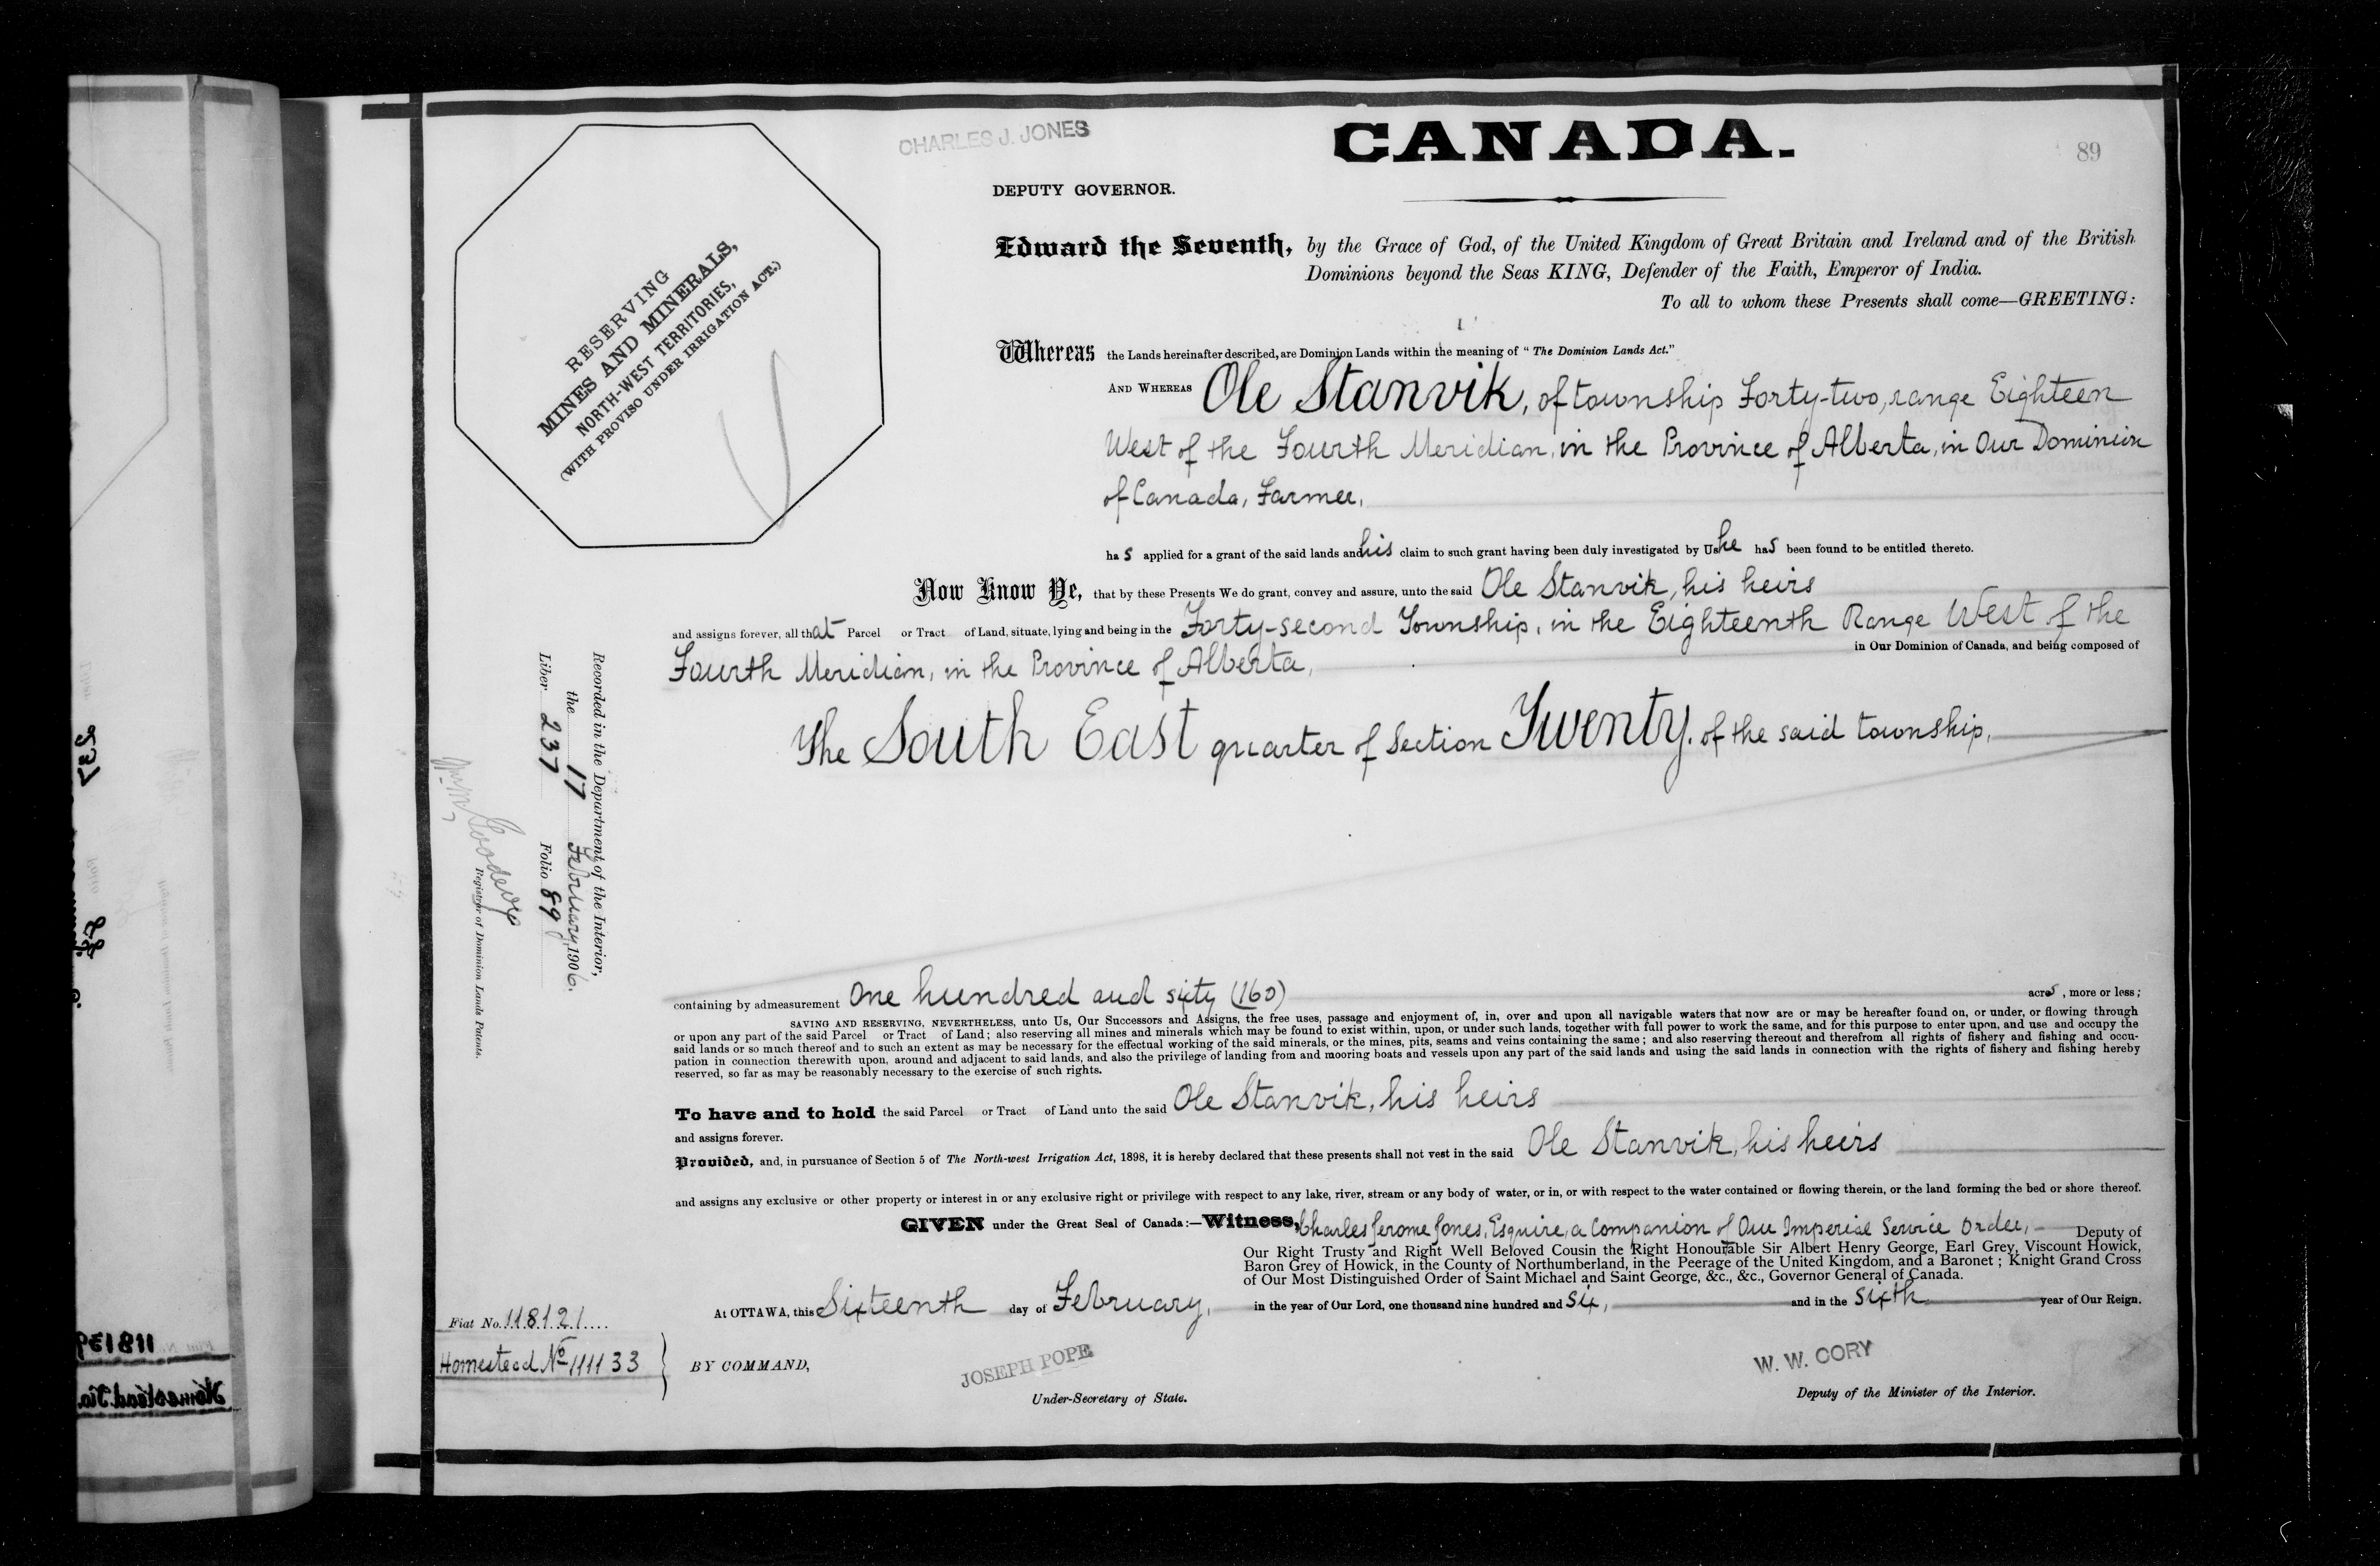 CHARLES J. JONES
CANADA.
89
DEPUTY GOVERNOR.
Edward the Seventh, by the Grace of God, of the United Kingdom of Great Britain and Ireland and of the British
Dominions beyond the Seas KING, Defender of the Faith, Emperor of India.
To all to whom these Presents shall come—GREETING:
RESERVING
MINES AND MINERALS,
NORTH-WEST TERRITORIES,
(WITH PROVISO UNDER IRRIGATION ACT.)
Whereas the Lands hereinafter described, are Dominion Lands within the meaning of "The Dominion Lands Act."
AND WHEREAS Ole Stanvik, of township Forty-two, range Eighteen
West of the Fourth Meridian, in the Province of Alberta, in Our Dominion
of Canada, Farmer,
has applied for a grant of the said lands and his claim to such grant having been duly investigated by Us he has been found to be entitled thereto.
Now Know Ye, that by these Presents We do grant, convey and assure, unto the said Ole Stanvik, his heirs
and assigns forever, all that Parcel or Tract of Land, situate, lying and being in the Forty-second Township, in the Eighteenth Range West of the
Fourth Meridian, in the Province of Alberta, in Our Dominion of Canada, and being composed of
The South East quarter of Section Twenty, of the said township,
Recorded in the Department of the Interior,
the 17 February, 1906.
Liber 237 Folio 89
Registrar of Dominion Lands Patents.
containing by admeasurement One hundred and sixty (160) acres, more or less;
SAVING AND RESERVING, NEVERTHELESS, unto Us, Our Successors and Assigns, the free uses, passage and enjoyment of, in, over and upon all navigable waters that now are or may be hereafter found on, or under, or flowing through
or upon any part of the said Parcel or Tract of Land; also reserving all mines and minerals which may be found to exist within, upon, or under such lands, together with full power to work the same, and for this purpose to enter upon, and use and occupy the
said lands or so much thereof and to such an extent as may be necessary for the effectual working of the said minerals, or the mines, pits, seams and veins containing the same; and also reserving thereout and therefrom all rights of fishery and fishing and occu-
pation in connection therewith upon, around and adjacent to said lands, and also the privilege of landing from and mooring boats and vessels upon any part of the said lands and using the said lands in connection with the rights of fishery and fishing hereby
reserved, so far as may be reasonably necessary to the exercise of such rights.
To have and to hold the said Parcel or Tract of Land unto the said Ole Stanvik, his heirs
and assigns forever.
Provided, and, in pursuance of Section 5 of The North-west Irrigation Act, 1898, it is hereby declared that these presents shall not vest in the said Ole Stanvik, his heirs
and assigns any exclusive or other property or interest in or any exclusive right or privilege with respect to any lake, river, stream or any body of water, or in, or with respect to the water contained or flowing therein, or the land forming the bed or shore thereof.
GIVEN under the Great Seal of Canada:—Witness, Charles Jerome Jones, Esquire, a Companion of Our Imperial Service Order, Deputy of
Our Right Trusty and Right Well Beloved Cousin the Right Honourable Sir Albert Henry George, Earl Grey, Viscount Howick,
Baron Grey of Howick, in the County of Northumberland, in the Peerage of the United Kingdom, and a Baronet; Knight Grand Cross
of Our Most Distinguished Order of Saint Michael and Saint George, &c., &c., Governor General of Canada.
At OTTAWA, this Sixteenth day of February, in the year of Our Lord, one thousand nine hundred and Six, and in the Sixth year of Our Reign.
Fiat No. 118121
Homestead No 111133
BY COMMAND,
JOSEPH POPE
Under-Secretary of State.
W. W. CORY
Deputy of the Minister of the Interior.